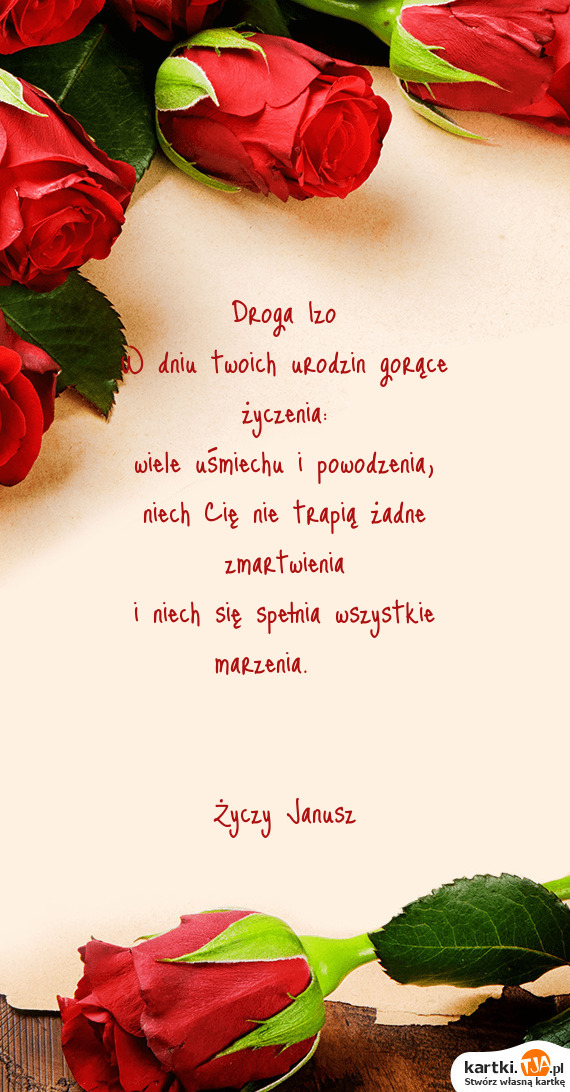 Droga Izo
W dniu twoich urodzin gorące
życzenia:
wiele uśmiechu i powodzenia,
niech Cię nie trapią żadne
zmartwienia
i niech się spełnia wszystkie
marzenia.
Życzy Janusz
kartki.TJA.pl
Stwórz własną kartkę